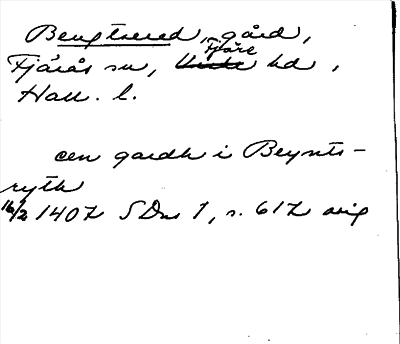 Bengtsered, gård,
Fjärås sn, Fjäre hd,
Hall. l.
cen gardh i Beynts-
rytk
16/2 1407 SDns 1, s. 617 orig